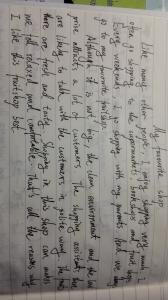 My favourite shop
Like many other people, I enjoy shopping very much. I
often go shopping to the supermarkets, bookshops and fruit shops.
Every weekends I go shopping with my parents. Now we
go to my favourite fruitshop.
Although it is not big, the clean environment and the low
price attracts a lot of customers. The shopping assistants here
are likely to talk with the customers in polite
there are fresh and tasty. Shopping in this shop can makes
me feel relaxed and comfortable. That's all the reasons why
I like this fruitshop best.